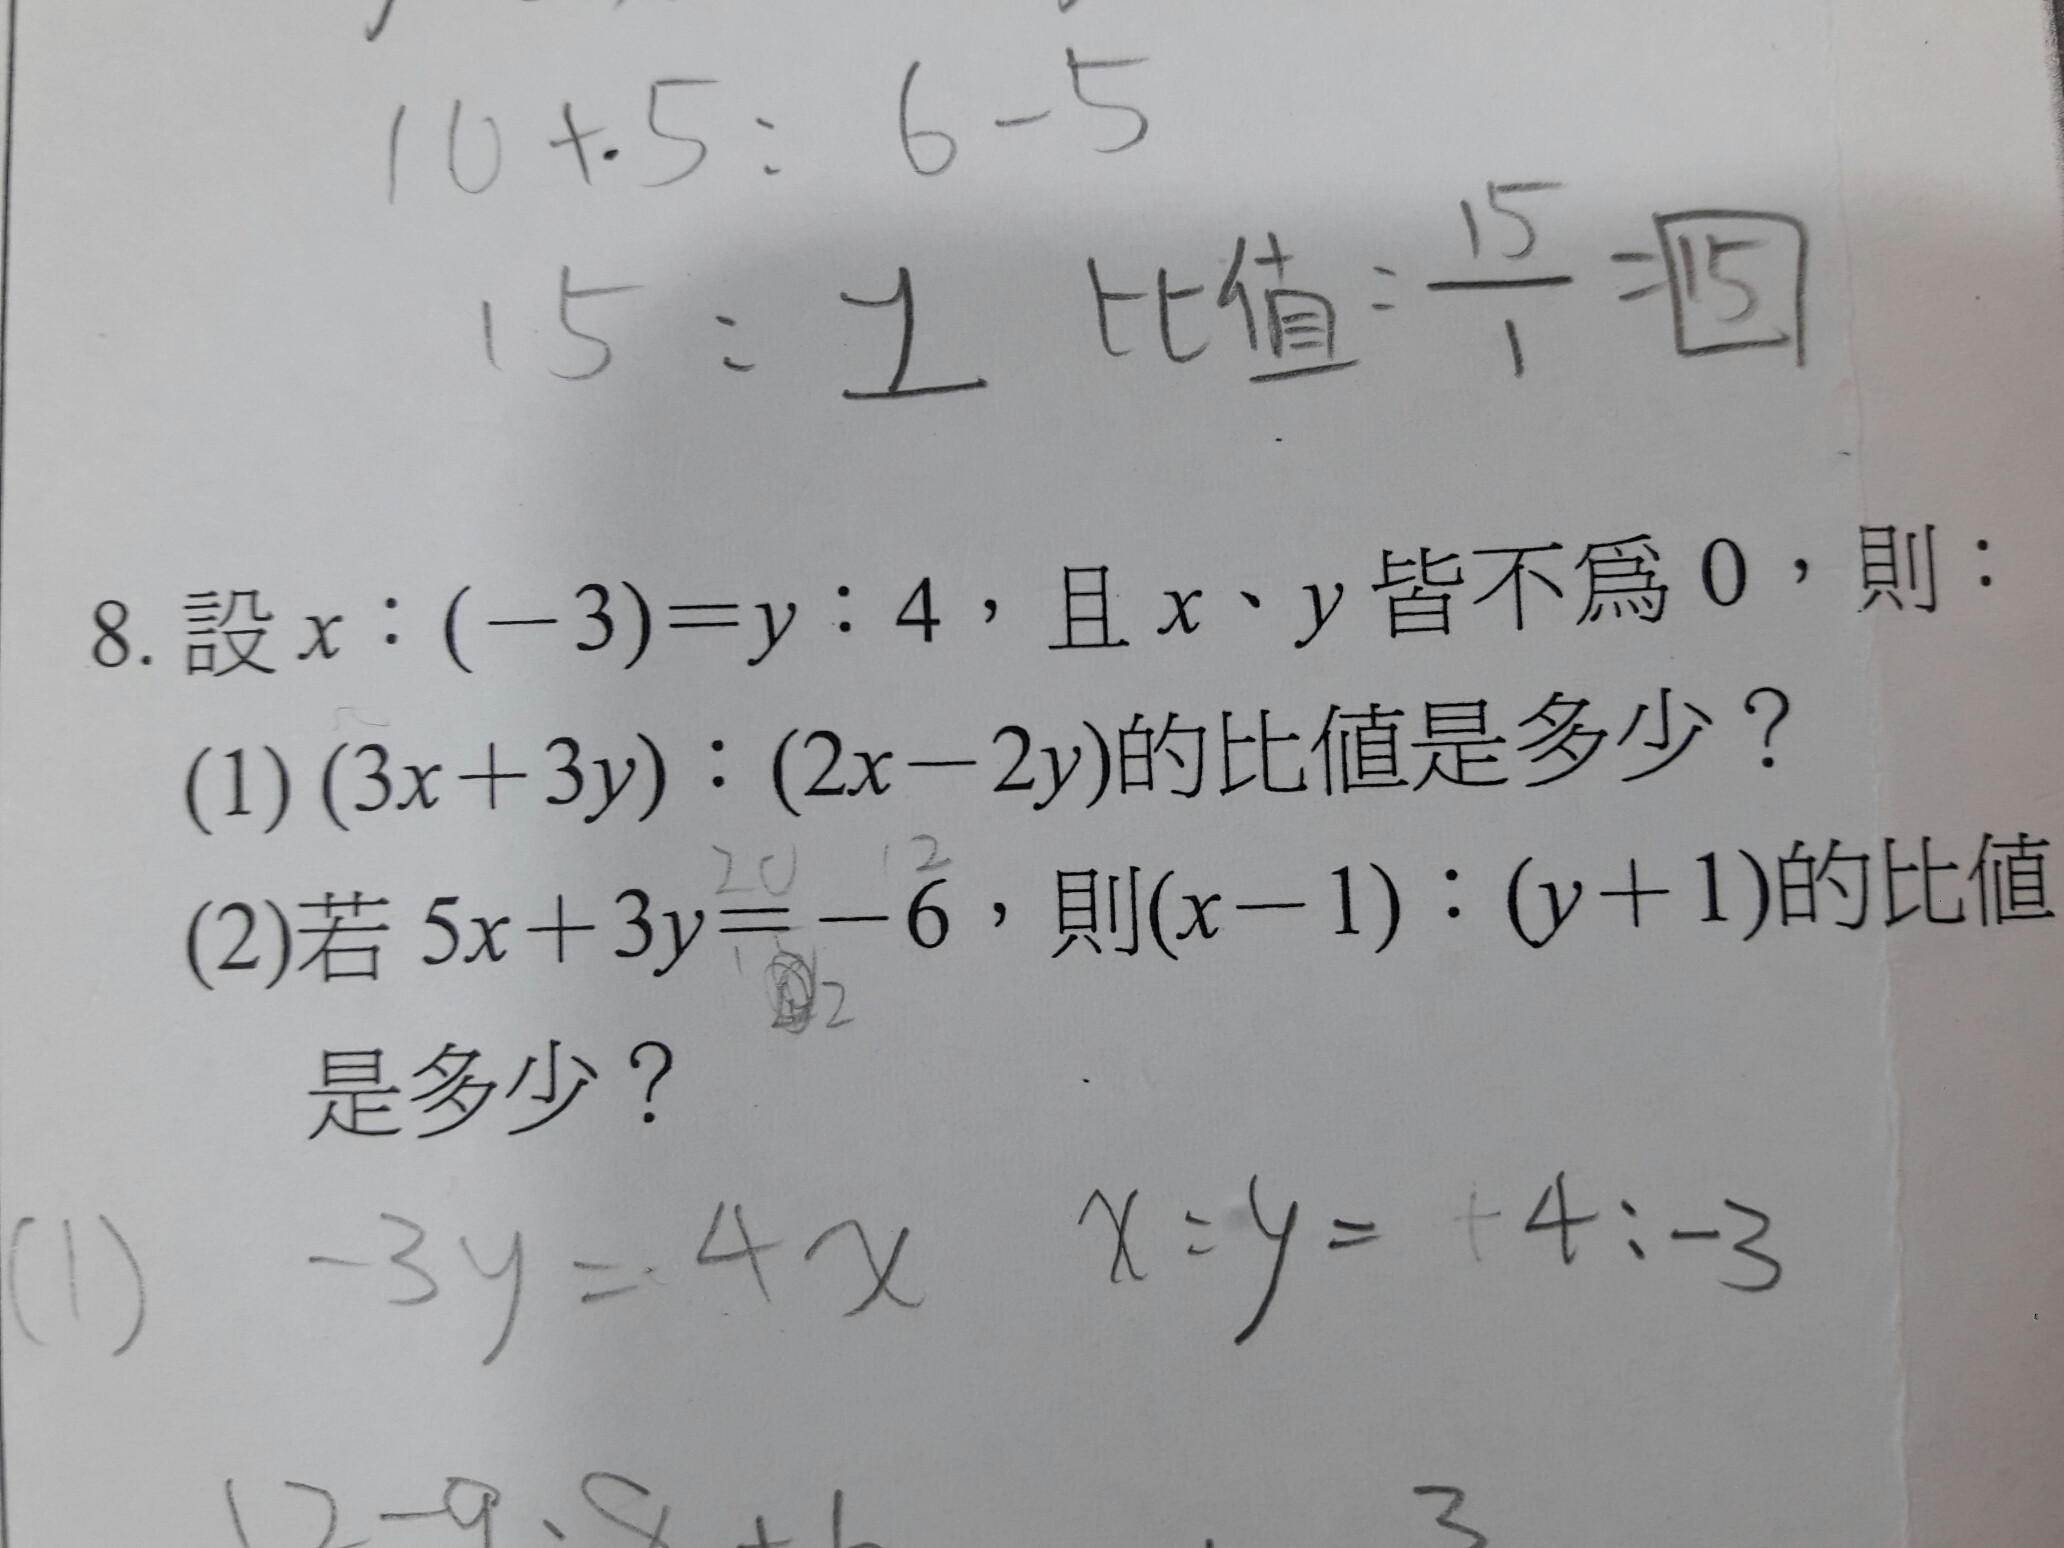 10+5: 6-5
15 : 1 比值=15/1=15
8. 設x:(-3)=y:4,且x、y皆不為0,則:
(1) (3x+3y):(2x-2y)的比值是多少?
20 12
(2)若 5x+3y=-6,則(x-1):(y+1)的比值
2
是多少?
(1) -3y=4x x:y=+4:-3
12-9:8+6 3